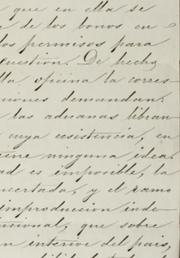 que en ella se
de los bonos en
los permisos para
cuestion. De hecho
lla oficina la corres-
ciones demandan.
las aduanas libran
cuya ecsistencia, en
tiene ninguna idea.
ad es imposible, la
ncertada, y el ramo
improduccion inde-
icional, que sobre
n interior del pais,